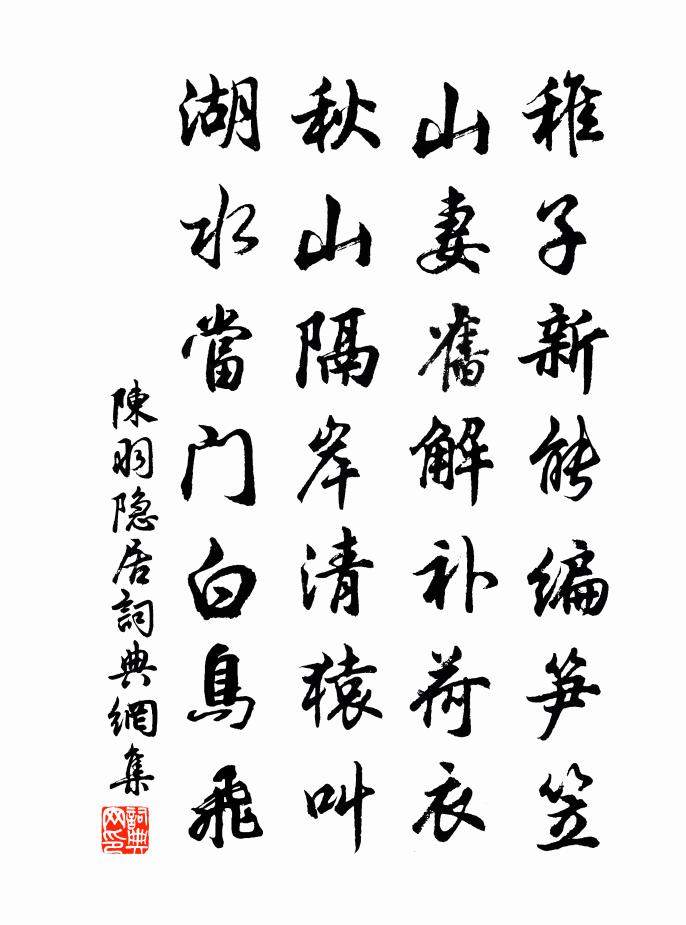 稚子新能编笋笠
山妻舊解补荷衣
秋山隔岸清猿叫
湖水當门白鳥飛
陳羽隐居詞典網集
詞典网印